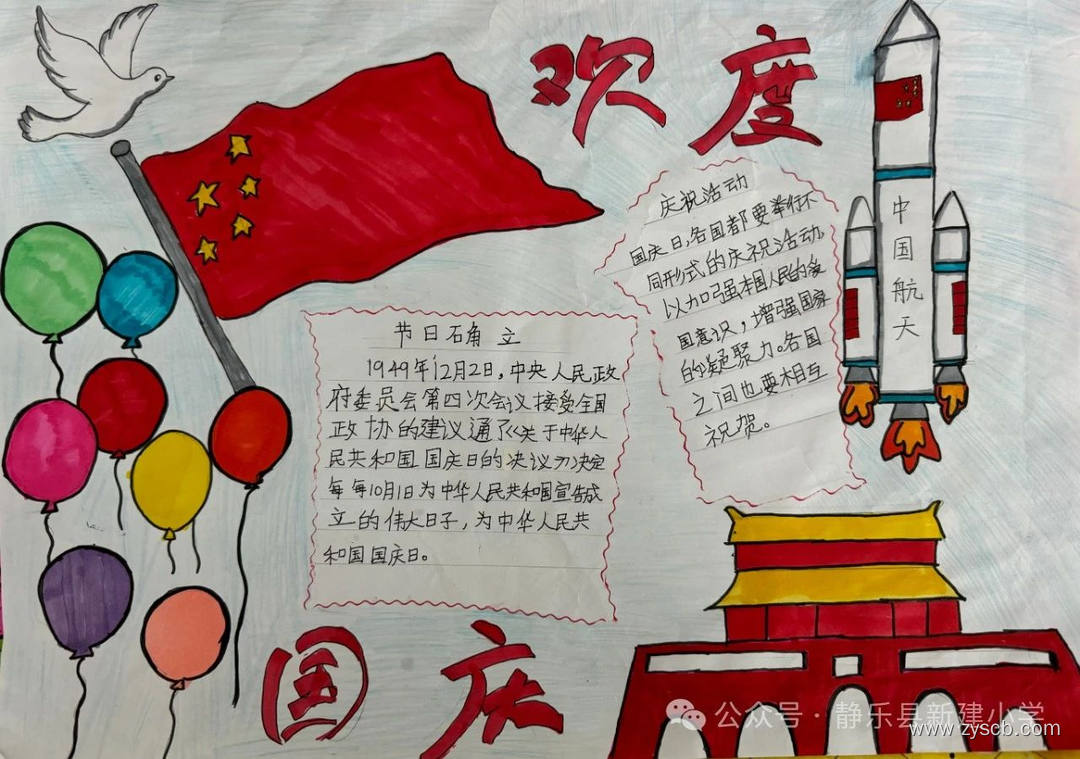 欢度
庆祝活动
国庆日,各国都要举行不
同形式的庆祝活动,
以加强本国人民的爱
国意识,增强国家
的凝聚力。各国
之间也要相互
祝贺。
中国航天
节日石角立
1949年12月2日,中央人民政
府委员会第四次会议接受全国
政协的建议通了《关于中华人
民共和国国庆日的决议》决定
每每10月1日为中华人民共和国宣告成
立的伟大日子,为中华人民共
和国国庆日。
国庆
公众号·静乐县新建小学
www.zyscb.com